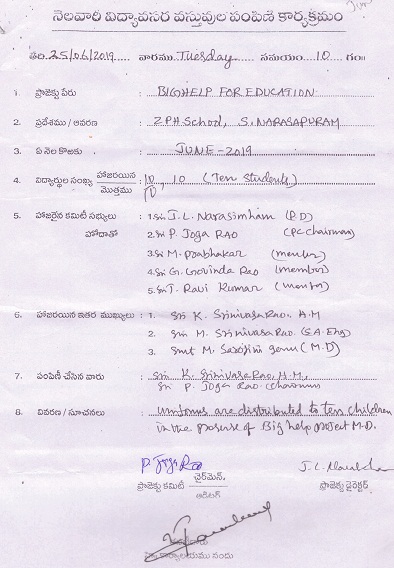 నెలవారీ విద్యావసర వస్తువుల పంపిణీ కార్యక్రమం
తేది. 25/06/2019 వారము Tuesday సమయం 10 గం॥
1. ప్రాజెక్టు పేరు : BIGHELP FOR EDUCATION
2. ప్రదేశము / ఆవరణ : Z.P.H School, S. NARASAPURAM
3. ఏ నెల కొఱకు : JUNE-2019
4. విద్యార్థుల సంఖ్య హాజరయిన / మొత్తము : 10, 10 (Ten Students)
10
5. హాజరైన కమిటీ సభ్యులు : 1. Sri J. L. Narasimham (P.D)
హోదాతో 2. Sri P. Joga RAO (PC Chairman)
3. Sri M. Prabhakar (member)
4. Sri G. Govinda Rao (member)
5. Sri T. Ravi Kumar (member)
6. హాజరయిన ఇతర ముఖ్యులు : 1. Sri K. Srinivasa Rao. H.M
2. Sri M. Srinivasa Rao. (S.A. Eng)
3. Smt M. Sarojini garu (M.D)
7. పంపిణీ చేసిన వారు : Sri K. Srinivasa Rao, H.M.,
Sri P. Joga Rao. Chairman
8. వివరణ / సూచనలు : Uniforms are distributed to ten children
in the presense of Big help project M.D.
P. Joga Rao
ప్రాజెక్టు కమిటీ చైర్మెన్, ప్రాజెక్టు డైరెక్టర్
ఆడిటర్
కార్యాలయము నందు